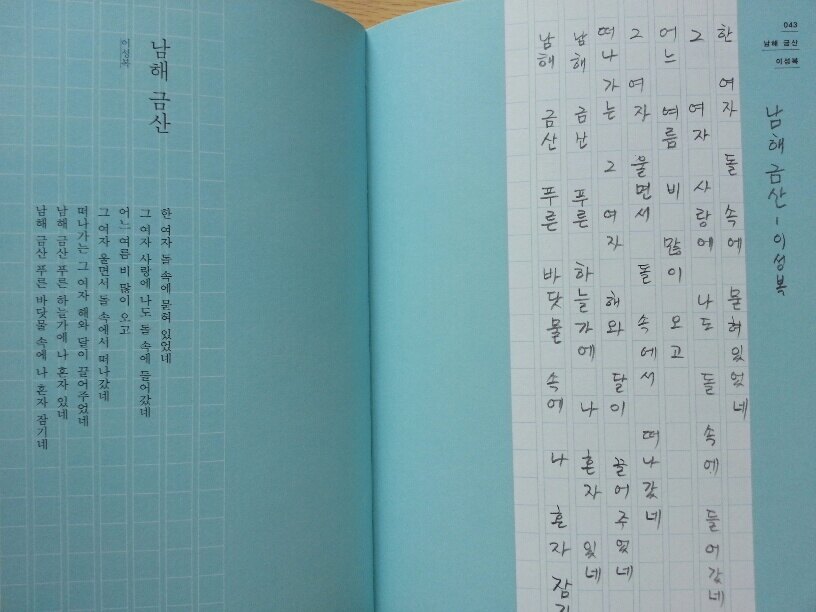 남해 금산
이성복
한 여자 돌 속에 묻혀 있었네
그 여자 사랑에 나도 돌 속에 들어갔네
어느 여름 비 많이 오고
그 여자 울면서 돌 속에서 떠나갔네
떠나가는 그 여자 해와 달이 끌어주었네
남해 금산 푸른 하늘가에 나 혼자 있네
남해 금산 푸른 바닷물 속에 나 혼자 잠기네
043
남해 금산
이성복
남해 금산 - 이성복
한 여자 돌 속에 묻혀있었네
그 여자 사랑에 나도 돌 속에 들어갔네
어느 여름 비 많이 오고
그 여자 울면서 돌 속에서 떠나갔네
떠나가는 그 여자 해와 달이 끌어주었네
남해 금산 푸른 하늘가에 나 혼자 있네
남해 금산 푸른 바닷물 속에 나 혼자 잠